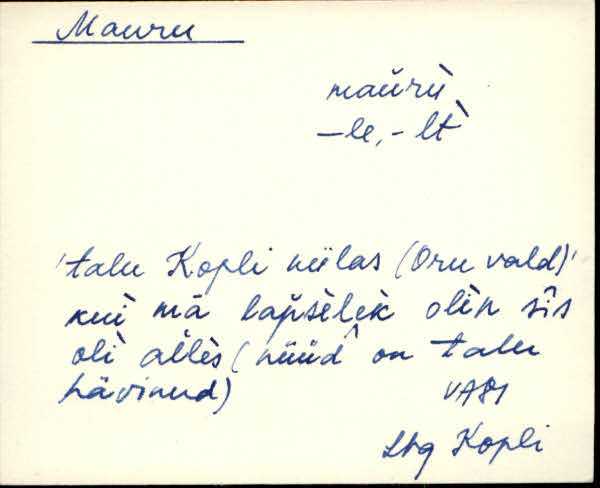 Mauru
maŭrù
–le, - lt̀
'talu Kopli külas (Oru vald)'
kuì mā lapšelèk olìn sîs
olì allès (nüüd on talu
hävinud)
VA81
Lhg Kopli